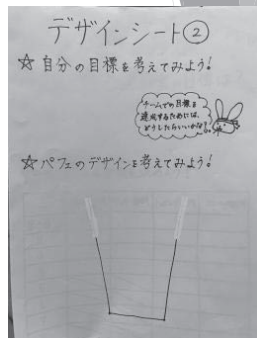 デザインシート②
☆自分の目標を考えてみよう!
チームでの目標を
達成するためには、
どうしたらいいかな?
☆パフェのデザインを考えてみよう!